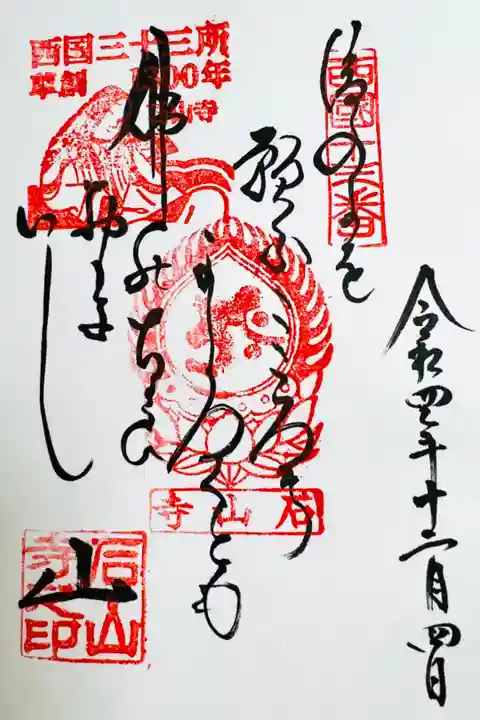 令和四年十二月四日
西國十三番
後のよを
願ふこころハ
かろくとも
佛のちかひ
おもき
いし
山
西国三十三所
草創1300年
石山寺
石山寺
石山寺之印